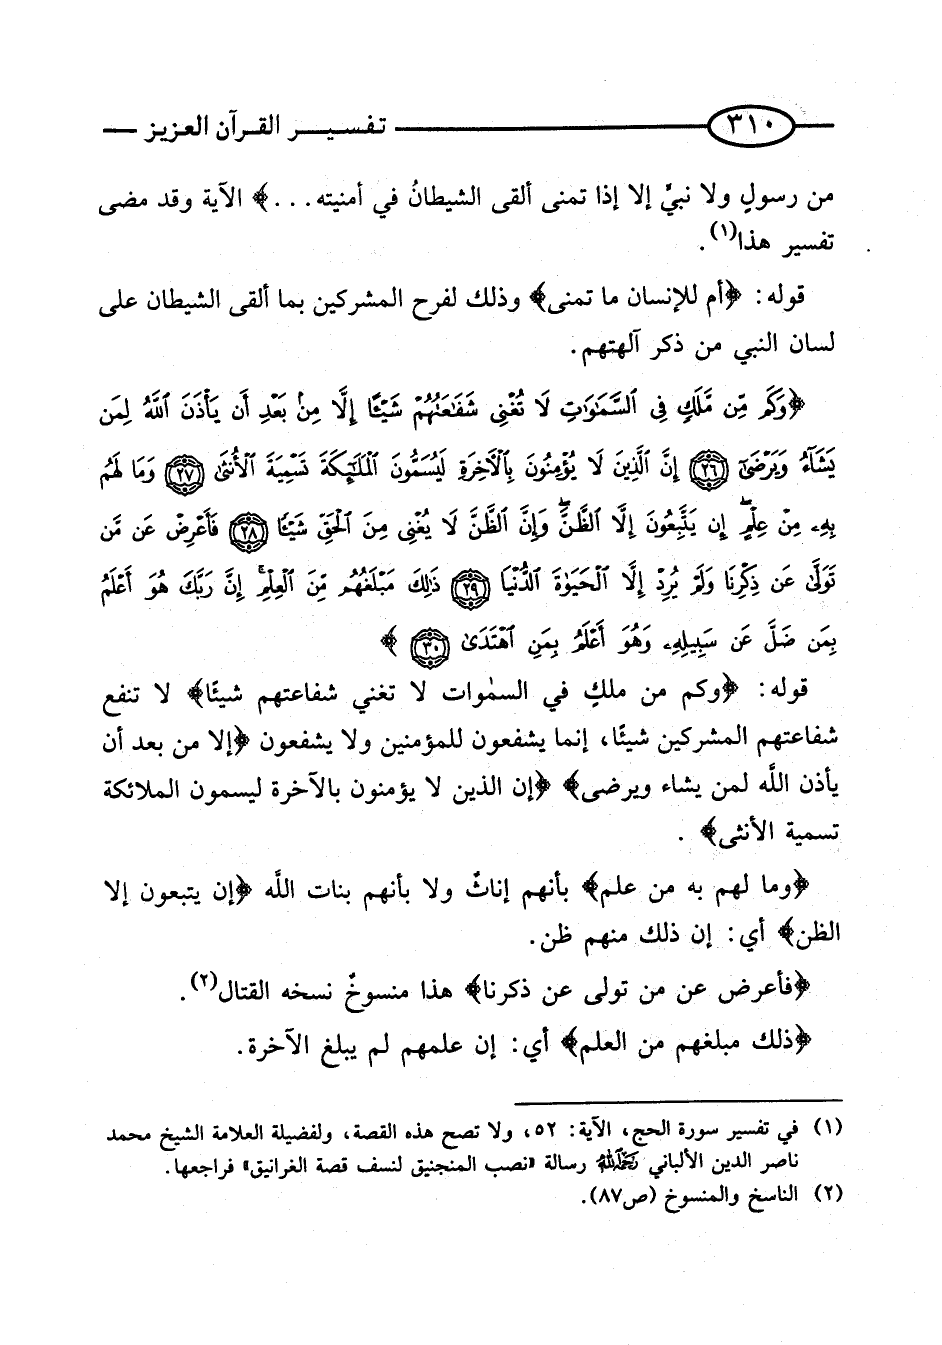 ٣١٠ تفسير القرآن العزيز
من رسولٍ ولا نبيٍّ إلا إذا تمنى ألقى الشيطانُ في أمنيته...﴾ الآية وقد مضى
تفسير هذا(١).
قوله: ﴿أم للإنسان ما تمنى﴾ وذلك لفرح المشركين بما ألقى الشيطان على
لسان النبي من ذكر آلهتهم.
﴿وَكَم مِّن مَّلَكٍ فِي ٱلسَّمَٰوَٰتِ لَا تُغْنِي شَفَٰعَتُهُمْ شَيْـًٔا إِلَّا مِنۢ بَعْدِ أَن يَأْذَنَ ٱللَّهُ لِمَن
يَشَآءُ وَيَرْضَىٰٓ ٢٦ إِنَّ ٱلَّذِينَ لَا يُؤْمِنُونَ بِٱلْأَخِرَةِ لَيُسَمُّونَ ٱلْمَلَٰٓئِكَةَ تَسْمِيَةَ ٱلْأُنثَىٰ ٢٧ وَمَا لَهُم
بِهِۦ مِنْ عِلْمٍ ۖ إِن يَتَّبِعُونَ إِلَّا ٱلظَّنَّ ۖ وَإِنَّ ٱلظَّنَّ لَا يُغْنِي مِنَ ٱلْحَقِّ شَيْـًٔا ٢٨ فَأَعْرِضْ عَن مَّن
تَوَلَّىٰ عَن ذِكْرِنَا وَلَمْ يُرِدْ إِلَّا ٱلْحَيَوٰةَ ٱلدُّنْيَا ٢٩ ذَٰلِكَ مَبْلَغُهُم مِّنَ ٱلْعِلْمِ ۚ إِنَّ رَبَّكَ هُوَ أَعْلَمُ
بِمَن ضَلَّ عَن سَبِيلِهِۦ وَهُوَ أَعْلَمُ بِمَنِ ٱهْتَدَىٰ ٣٠﴾
قوله: ﴿وكم من ملكٍ في السمٰوات لا تغني شفاعتهم شيئًا﴾ لا تنفع
شفاعتهم المشركين شيئًا، إنما يشفعون للمؤمنين ولا يشفعون ﴿إلا من بعد أن
يأذن اللَّه لمن يشاء ويرضى﴾ ﴿إن الذين لا يؤمنون بالآخرة ليسمون الملائكة
تسمية الأنثى﴾ .
﴿وما لهم به من علم﴾ بأنهم إناثٌ ولا بأنهم بنات اللَّه ﴿إن يتبعون إلا
الظن﴾ أي: إن ذلك منهم ظن.
﴿فأعرض عن من تولى عن ذكرنا﴾ هذا منسوخٌ نسخه القتال(٢).
﴿ذلك مبلغهم من العلم﴾ أي: إن علمهم لم يبلغ الآخرة.
(١) في تفسير سورة الحج، الآية: ٥٢، ولا تصح هذه القصة، ولفضيلة العلامة الشيخ محمد
ناصر الدين الألباني رَحِمَهُ اللهُ رسالة «نصب المنجنيق لنسف قصة الغرانيق» فراجعها.
(٢) الناسخ والمنسوخ (ص٨٧).